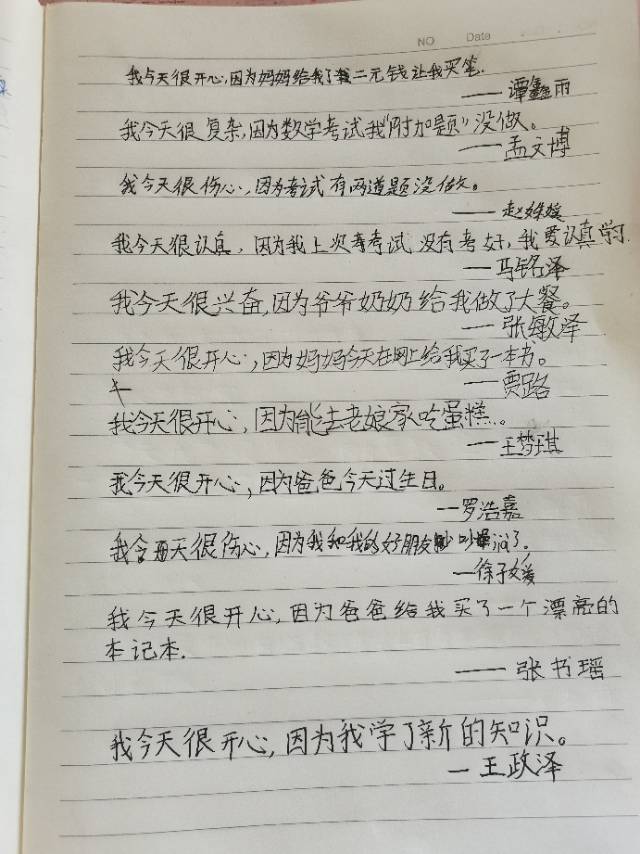 NO Date
我今天很开心,因为妈妈给我了二元钱让我买笔.
——谭鑫雨
我今天很复杂,因为数学考试我“附加题”没做。
——孟文博
我今天很伤心,因为考试有两道题没做。
——赵
我今天很认真,因为我上次考试没有考好,我要认真学习
—马铭泽
我今天很兴奋,因为爷爷奶奶给我做了大餐。
—张敏泽
我今天很开心,因为妈妈今天在网上给我买了一本书。
—贾路
我今天很开心,因为能去老娘家吃蛋糕。
—王梦琪
我今天很开心,因为爸爸今天过生日。
—罗浩嘉
我今天很伤心,因为我和我的好朋友吵了。
—徐子媛
我今天很开心,因为爸爸给我买了一个漂亮的
本记本.
——张书瑶
我今天很开心,因为我学了新的知识。
—王政泽